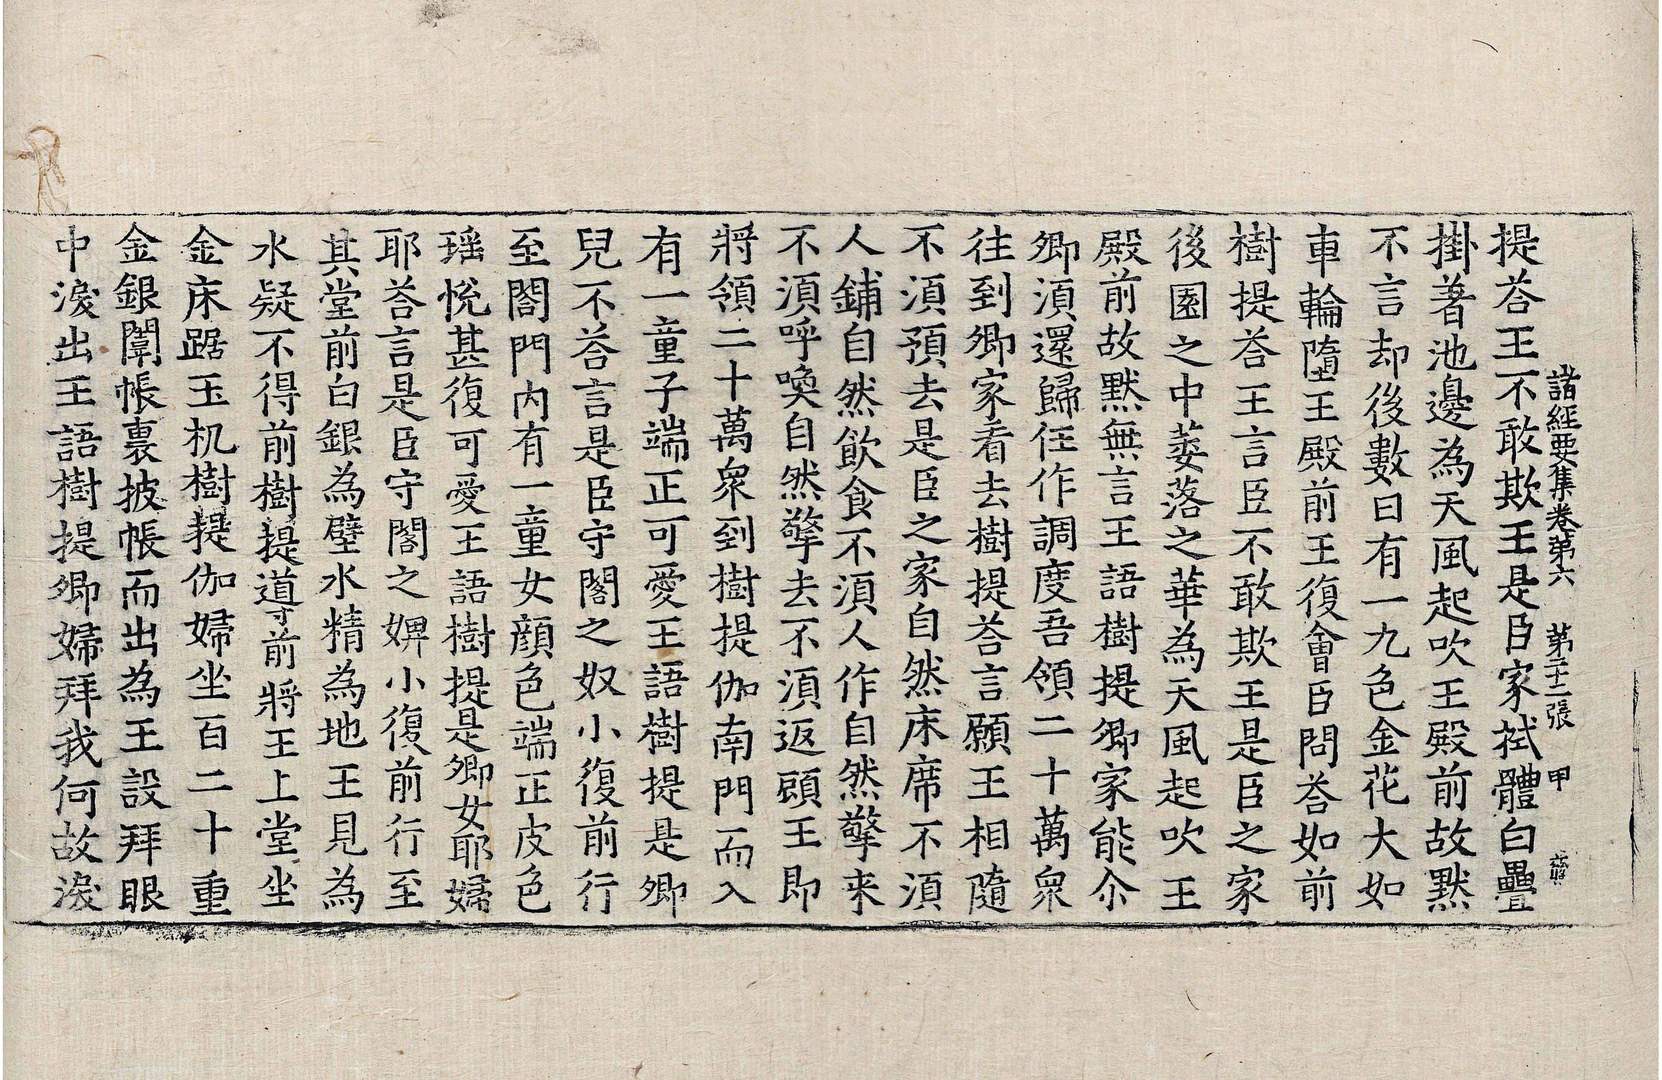 諸經要集卷第六　第二十二張　甲
提荅王不敢欺王是臣家拭體白疊
掛著池邊為天風起吹王殿前故黙
不言却後數日有一九色金花大如
車輪墮王殿前王復會臣問荅如前
樹提荅王言臣不敢欺王是臣之家
後園之中萎落之華為天風起吹王
殿前故黙無言王語樹提卿家能尒
卿湏還歸任作調度吾領二十萬衆
往到卿家看去樹提荅言願王相隨
不湏預去是臣之家自然床席不湏
人鋪自然飲食不湏人作自然擎来
不湏呼喚自然擎去不湏返顧王即
將領二十萬衆到樹提伽南門而入
有一童子端正可愛王語樹提是卿
兒不荅言是臣守閤之奴小復前行
至閤門內有一童女顔色端正皮色
瑶悅甚復可愛王語樹提是卿女耶婦
耶荅言是臣守閤之婢小復前行至
其堂前白銀為壁水精為地王見為
水疑不得前樹提導前將王上堂坐
金床踞玉机樹提伽婦坐百二十重
金銀闈帳裏披帳而出為王設拜眼
中淚出王語樹提卿婦拜我何故淚